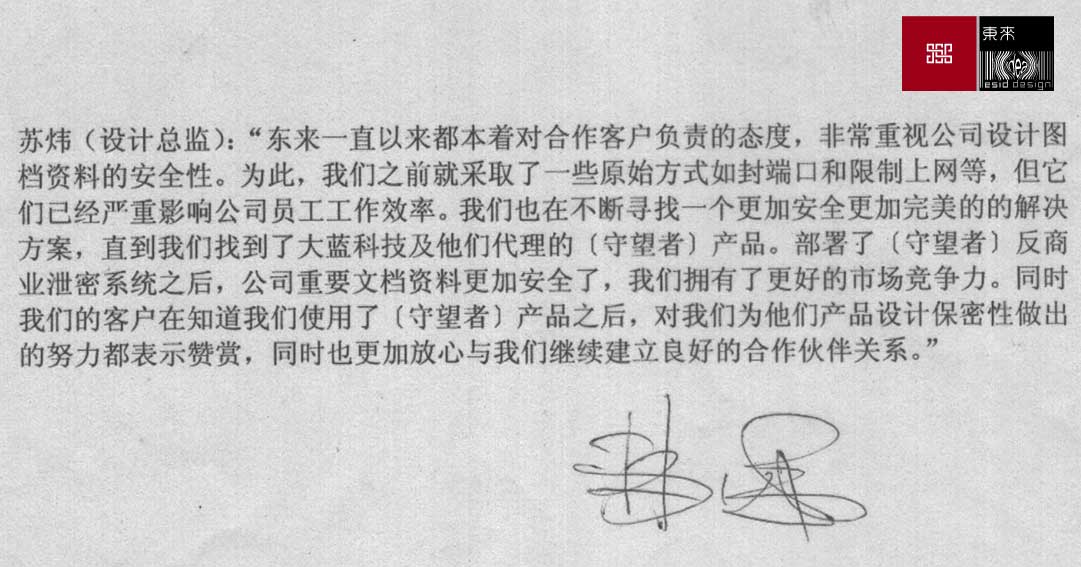 東來
idea
esid design
苏炜（设计总监）：“东来一直以来都本着对合作客户负责的态度，非常重视公司设计图
档资料的安全性。为此，我们之前就采取了一些原始方式如封端口和限制上网等，但它
们已经严重影响公司员工工作效率。我们也在不断寻找一个更加安全更加完美的的解决
方案，直到我们找到了大蓝科技及他们代理的〔守望者〕产品。部署了〔守望者〕反商
业泄密系统之后，公司重要文档资料更加安全了，我们拥有了更好的市场竞争力。同时
我们的客户在知道我们使用了〔守望者〕产品之后，对我们为他们产品设计保密性做出
的努力都表示赞赏，同时也更加放心与我们继续建立良好的合作伙伴关系。”